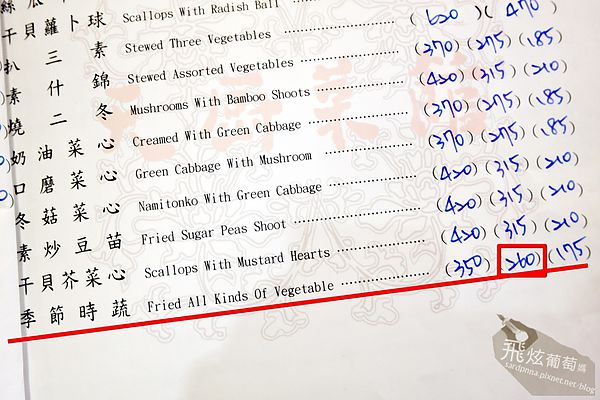 干貝蘿卜球 Scallops With Radish Ball
扒三素 Stewed Three Vegetables (620)(470)
素什錦 Stewed Assorted Vegetables (370)(275)(185)
燒二冬 Mushrooms With Bamboo Shoots (420)(315)(210)
奶油菜心 Creamed With Green Cabbage (370)(275)(185)
口磨菜心 Green Cabbage With Mushroom (370)(275)(185)
冬菇菜心 Namitonko With Green Cabbage (420)(315)(210)
素炒豆苗 Fried Sugar Peas Shoot (420)(315)(210)
干貝芥菜心 Scallops With Mustard Hearts (420)(315)(210)
季節時蔬 Fried All Kinds Of Vegetable (350)(260)(175)
飛炫葡萄媽
sardpnna.pixnet.net/blog